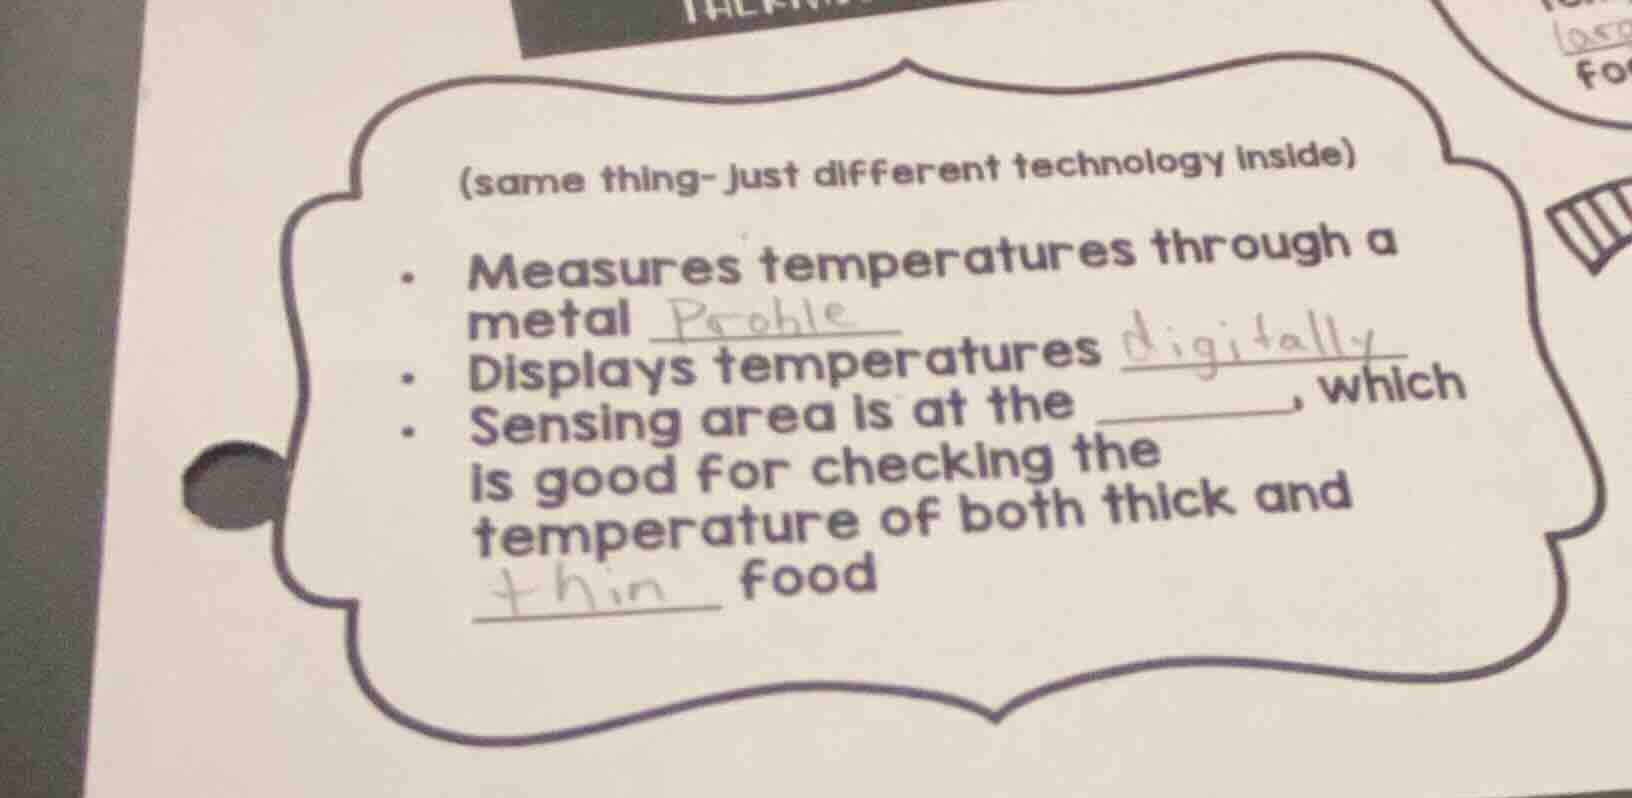 (same thing- just different technology inside)
• Measures temperatures through a
metal Prohle
• Displays temperatures digitally
• Sensing area is at the ______, which
is good for checking the
temperature of both thick and
thin food